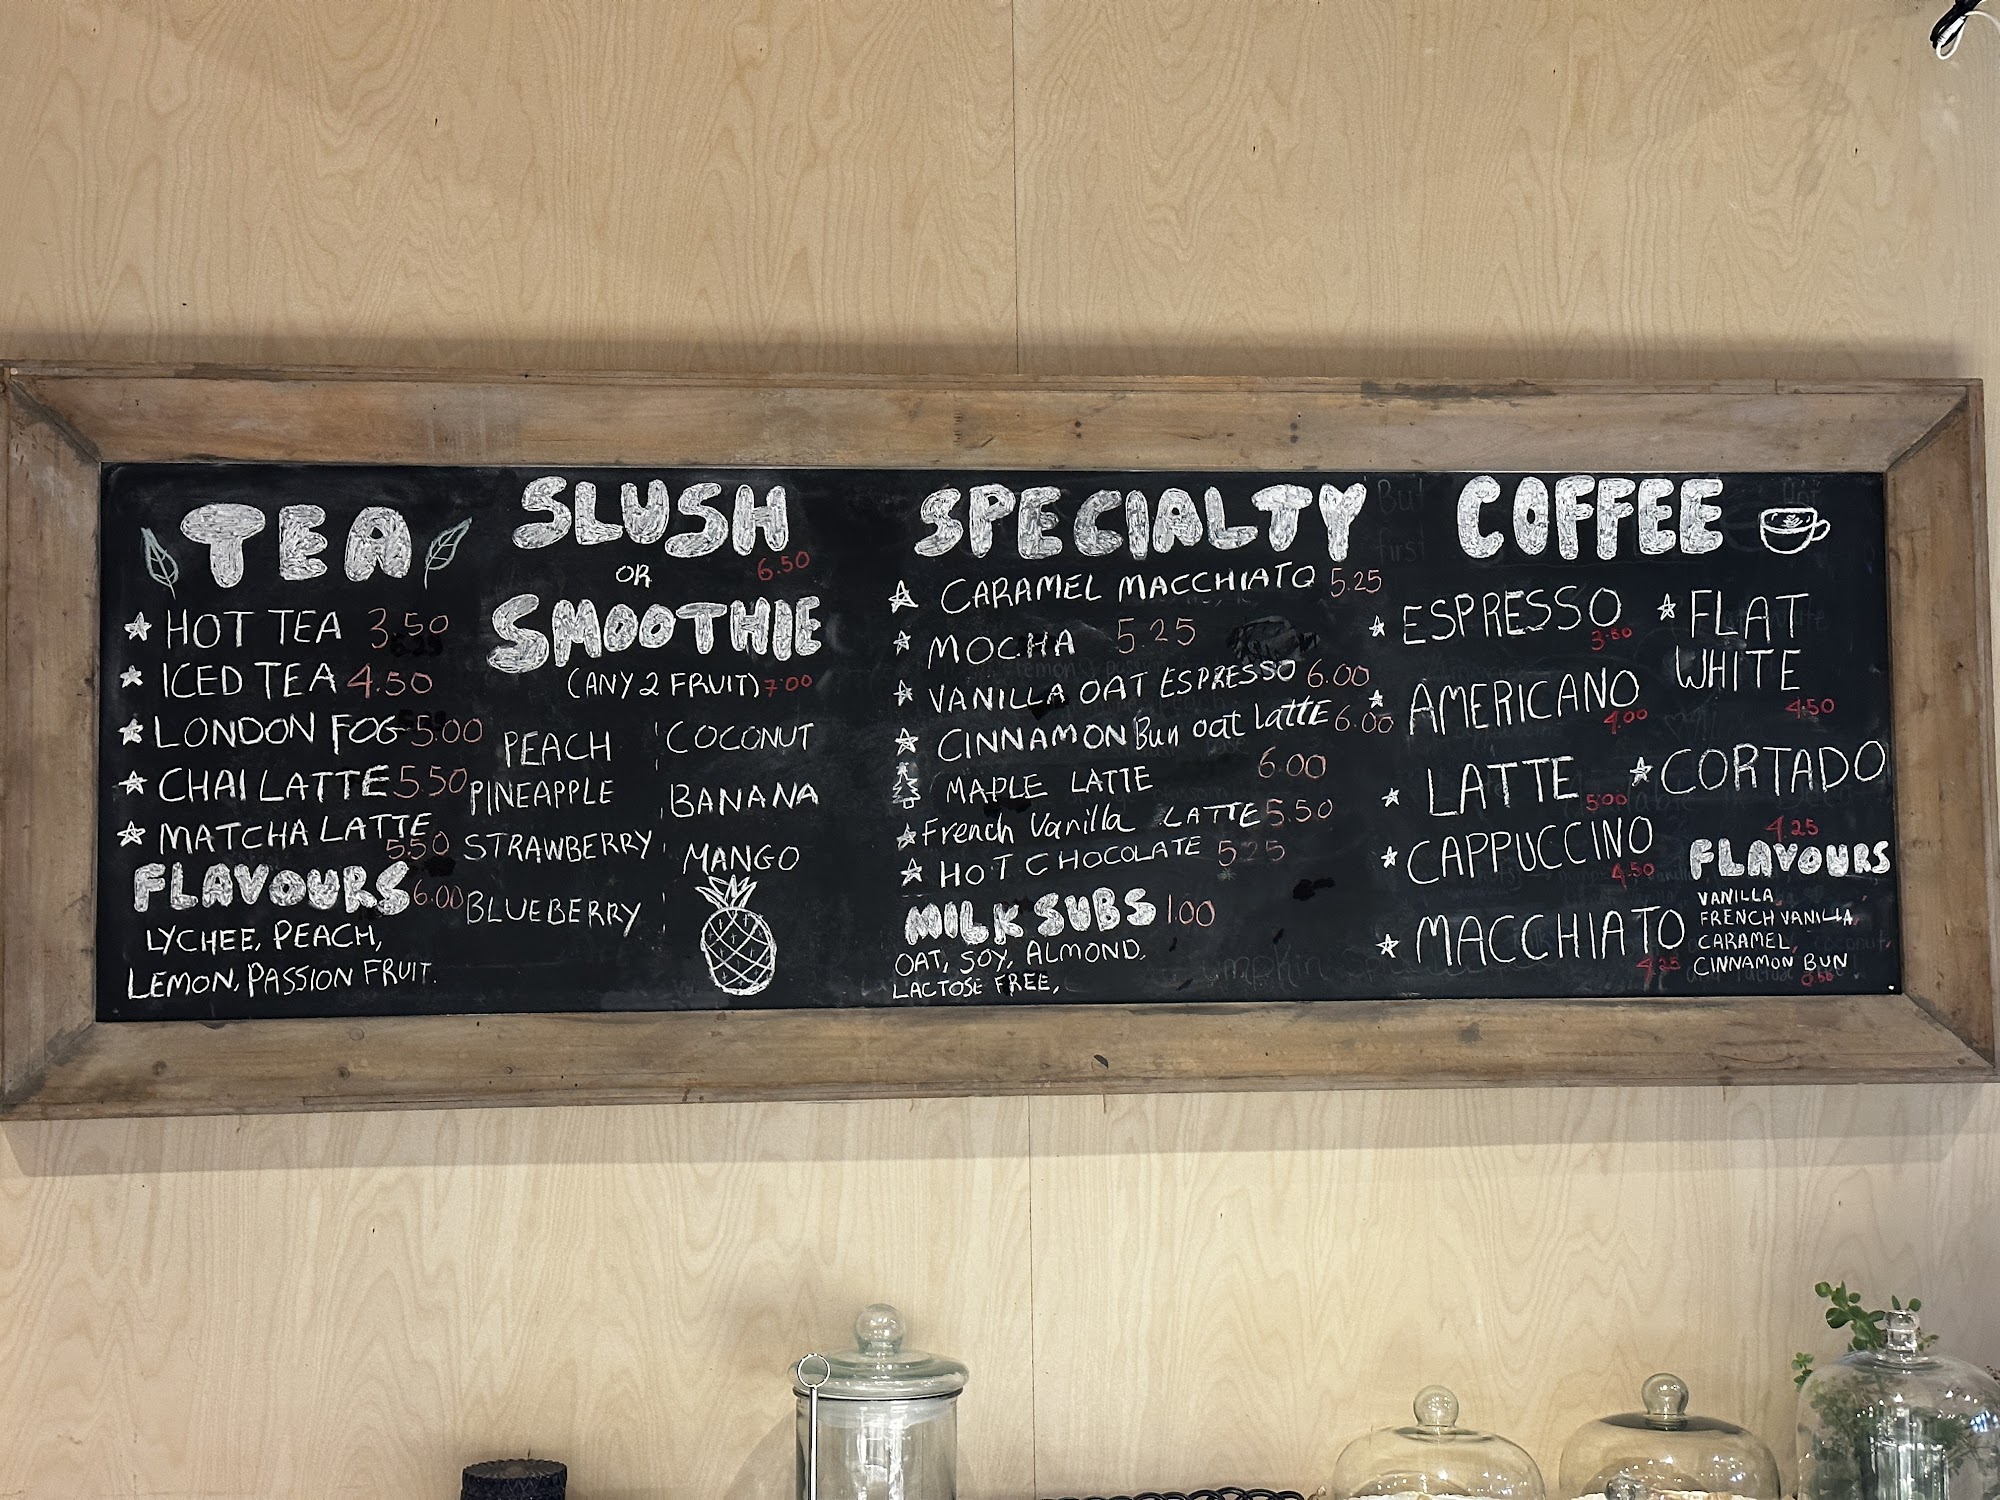 TEA
HOT TEA 3.50
ICED TEA 4.50
LONDON FOG 5.00
CHAI LATTE 5.50
MATCHA LATTE 5.50
FLAVOURS 6.00
LYCHEE, PEACH,
LEMON, PASSION FRUIT.
SLUSH
OR 6.50
SMOOTHIE
(ANY 2 FRUIT) 7.00
PEACH
PINEAPPLE
STRAWBERRY
BLUEBERRY
COCONUT
BANANA
MANGO
SPECIALTY
CARAMEL MACCHIATO 5.25
MOCHA 5.25
VANILLA OAT ESPRESSO 6.00
CINNAMON Bun oat latte 6.00
MAPLE LATTE 6.00
French Vanilla LATTE 5.50
HOT CHOCOLATE 5.25
MILK SUBS 1.00
OAT, SOY, ALMOND,
LACTOSE FREE,
COFFEE
ESPRESSO
AMERICANO 4.00
LATTE 5.00
CAPPUCCINO 4.50
MACCHIATO 4.25
FLAT
WHITE
4.50
CORTADO
4.25
FLAVOURS
VANILLA,
FRENCH VANILLA,
CARAMEL,
CINNAMON BUN
But
first